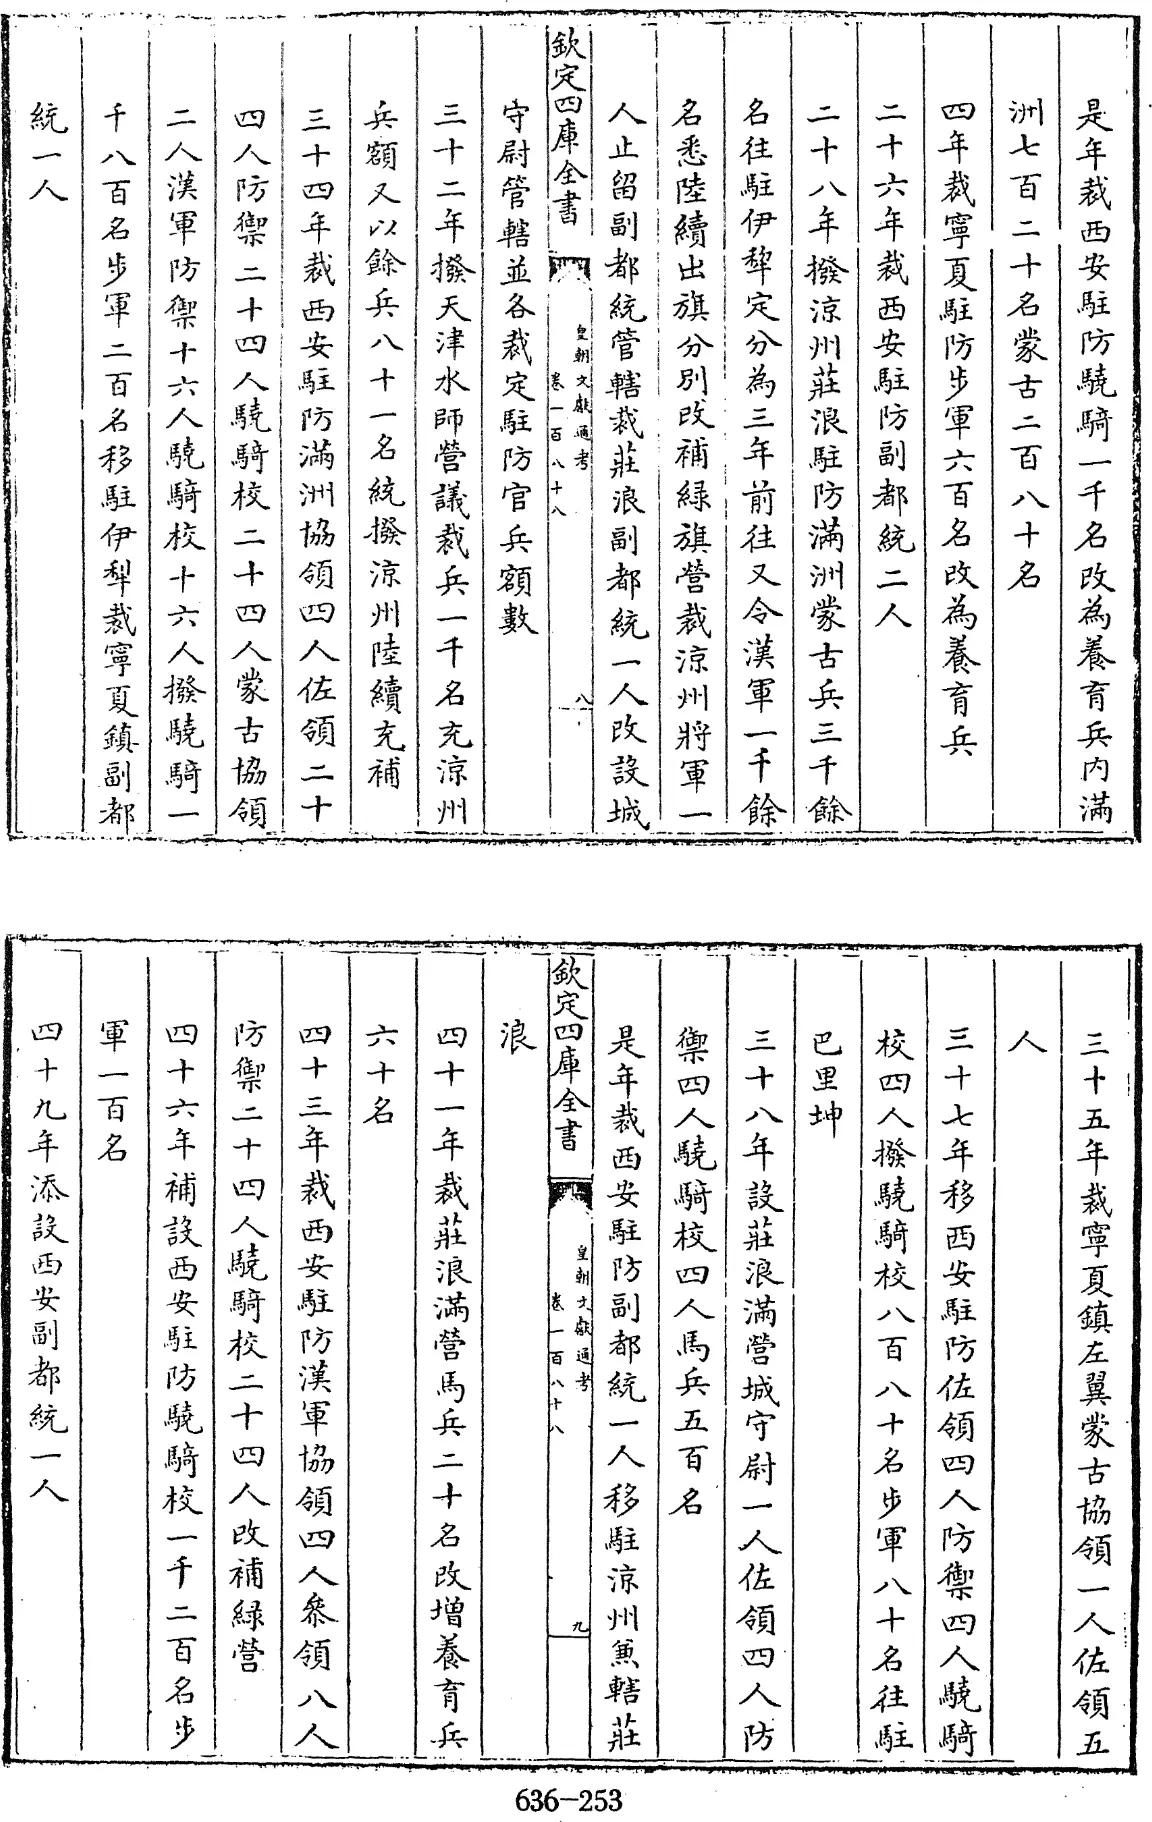 是年裁西安駐防驍騎一千名改為養育兵内滿
洲七百二十名蒙古二百八十名
四年裁寧夏駐防步軍六百名改為養育兵
二十六年裁西安駐防副都統二人
二十八年撥涼州莊浪駐防滿洲蒙古兵三千餘
名往駐伊犂定分為三年前往又令漢軍一千餘
名悉陸續出旗分別改補緑旗營裁涼州將軍一
人止留副都統管轄裁莊浪副都統一人改設城
欽定四庫全書
皇朝文獻通考
卷一百八十八
八
守尉管轄並各裁定駐防官兵額數
三十二年撥天津水師營議裁兵一千名充涼州
兵額又以餘兵八十一名統撥涼州陸續充補
三十四年裁西安駐防滿洲協領四人佐領二十
四人防禦二十四人驍騎校二十四人蒙古協領
二人漢軍防禦十六人驍騎校十六人撥驍騎一
千八百名步軍二百名移駐伊犂裁寧夏鎮副都
統一人
三十五年裁寧夏鎮左翼蒙古協領一人佐領五
人
三十七年移西安駐防佐領四人防禦四人驍騎
校四人撥驍騎校八百八十名步軍八十名往駐
巴里坤
三十八年設莊浪滿營城守尉一人佐領四人防
禦四人驍騎校四人馬兵五百名
是年裁西安駐防副都統一人移駐涼州兼轄莊
欽定四庫全書
皇朝文獻通考
卷一百八十八
九
浪
四十一年裁莊浪滿營馬兵二十名改增養育兵
六十名
四十三年裁西安駐防漢軍協領四人叅領八人
防禦二十四人驍騎校二十四人改補緑營
四十六年補設西安駐防驍騎校一千二百名步
軍一百名
四十九年添設西安副都統一人
636-253